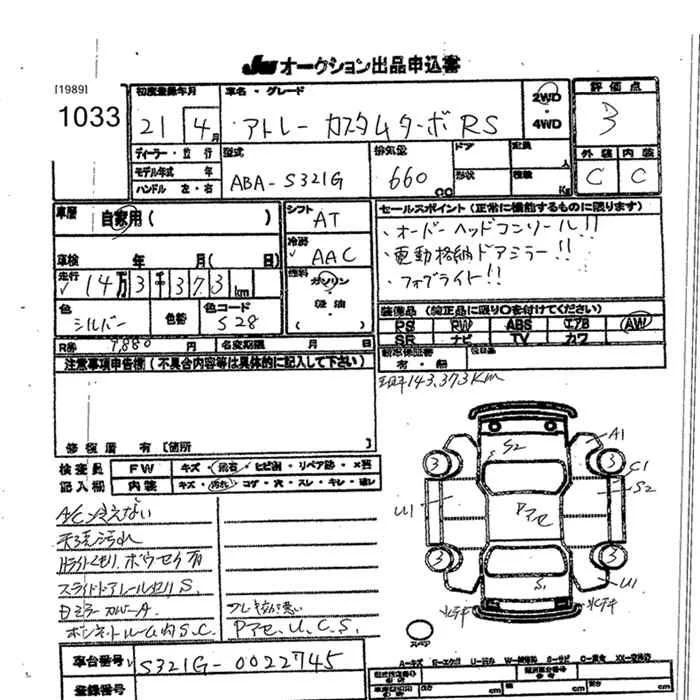 JU オークション出品申込書
[1989]
1033
初度登録年月
21年 4月
車名・グレード
アトレー カスタムターボRS
2WD
・4WD
評価点
3
外装 内装
C C
ディーラー・並行
モデル年式 年
ハンドル 左・右
型式
ABA-S321G
排気量
660 cc
ドア
形状
定員 人
積載 Kg
車歴
自家用( )
車検 年 月( 日)
走行
14万3千373km
シフト
AT
冷房
AAC
燃料
ガソリン
軽油
色
シルバー
色替
色コード
S28
R券 9,880 円
名変期限 月 日
セールスポイント(正常に機能するものに限ります)
・オーバーヘッドコンソール!!
・電動格納ドアミラー!!
・フォグライト!!
装備品(純正品に限り○を付けてください)
PS RW ABS エアB AW
SR ナビ TV カワ
新車保証書
有・無
143,373km
注意事項申告欄(不具合内容等は具体的に記入して下さい)
修復歴 有[箇所 ]
検査員 FW キズ・飛石・ヒビ割・リペア跡・×要
記入欄 内装 キズ・汚れ・コゲ・穴・スレ・キレ・違レ
A/C冷えない
天張汚れ
スライドドアレールサビS.
ボンネットルーム内S.C.
Pアセ.U.C.S.
車台番号 S321G-0022745
登録番号
S2
A1
3
3
C1
S2
U1
Pアセ
3
3
S1
U1
スペア
A-キズ E-エクボ U-凹み W-補修跡 S-サビ C-腐食 XX-交換済
cm
cm
cm